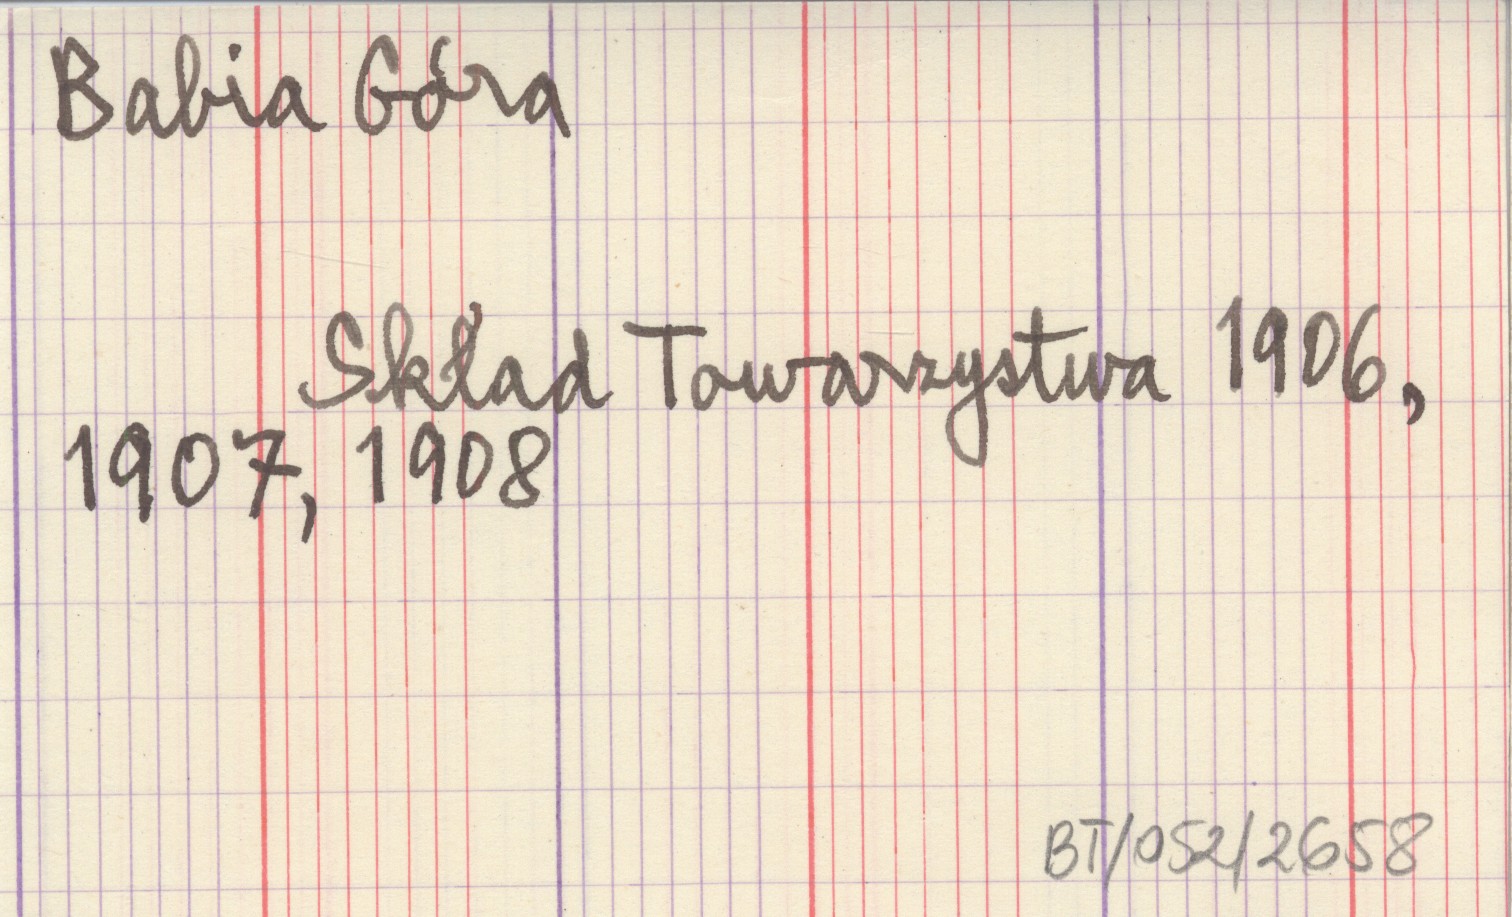 Babia Góra
Skład Towarzystwa 1906,
1907, 1908
BT/052/2658